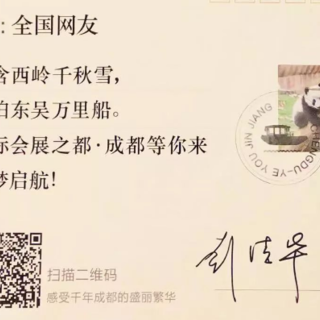 : 全国网友
含西岭千秋雪，
泊东吴万里船。
际会展之都·成都等你来
梦启航！
CHENGDU-YE YOU JIN JIANG
扫描二维码
感受千年成都的盛丽繁华